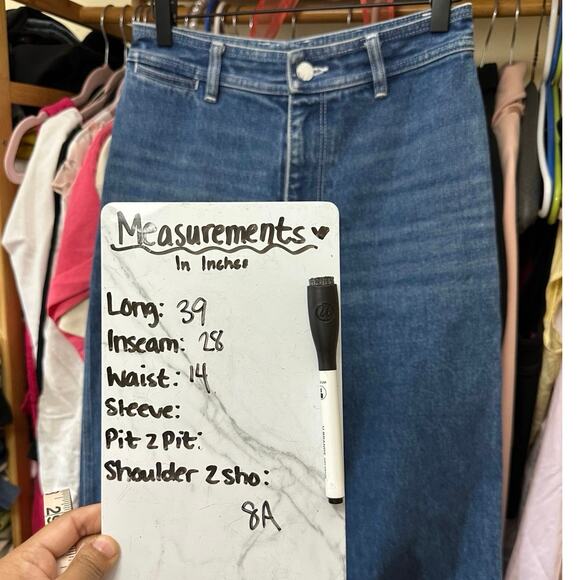 Measurements ♥
In Inches
Long: 39
Inseam: 28
Waist: 14
Sleeve:
Pit 2 Pit:
Shoulder 2 Sho:
8A